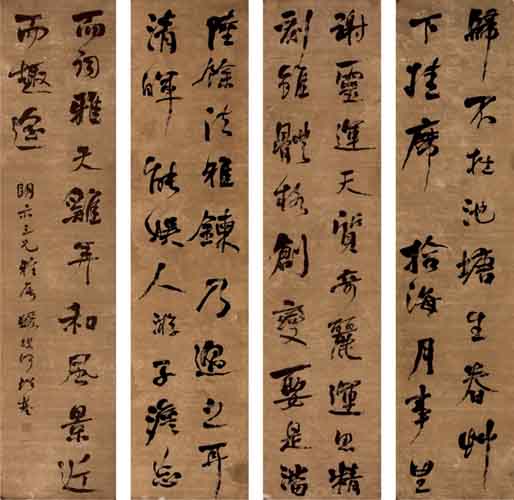 謝靈運天質奇麗運思精
雖體格創變要是潘
陸餘法雅鍊乃過之耳
清暉能娛人游子澹忘
歸不在池塘生春艸
下挂席拾海月事俚
而詞雅天雞弄和風景近
而趣遙
三兄雅屬 猨叟何紹基